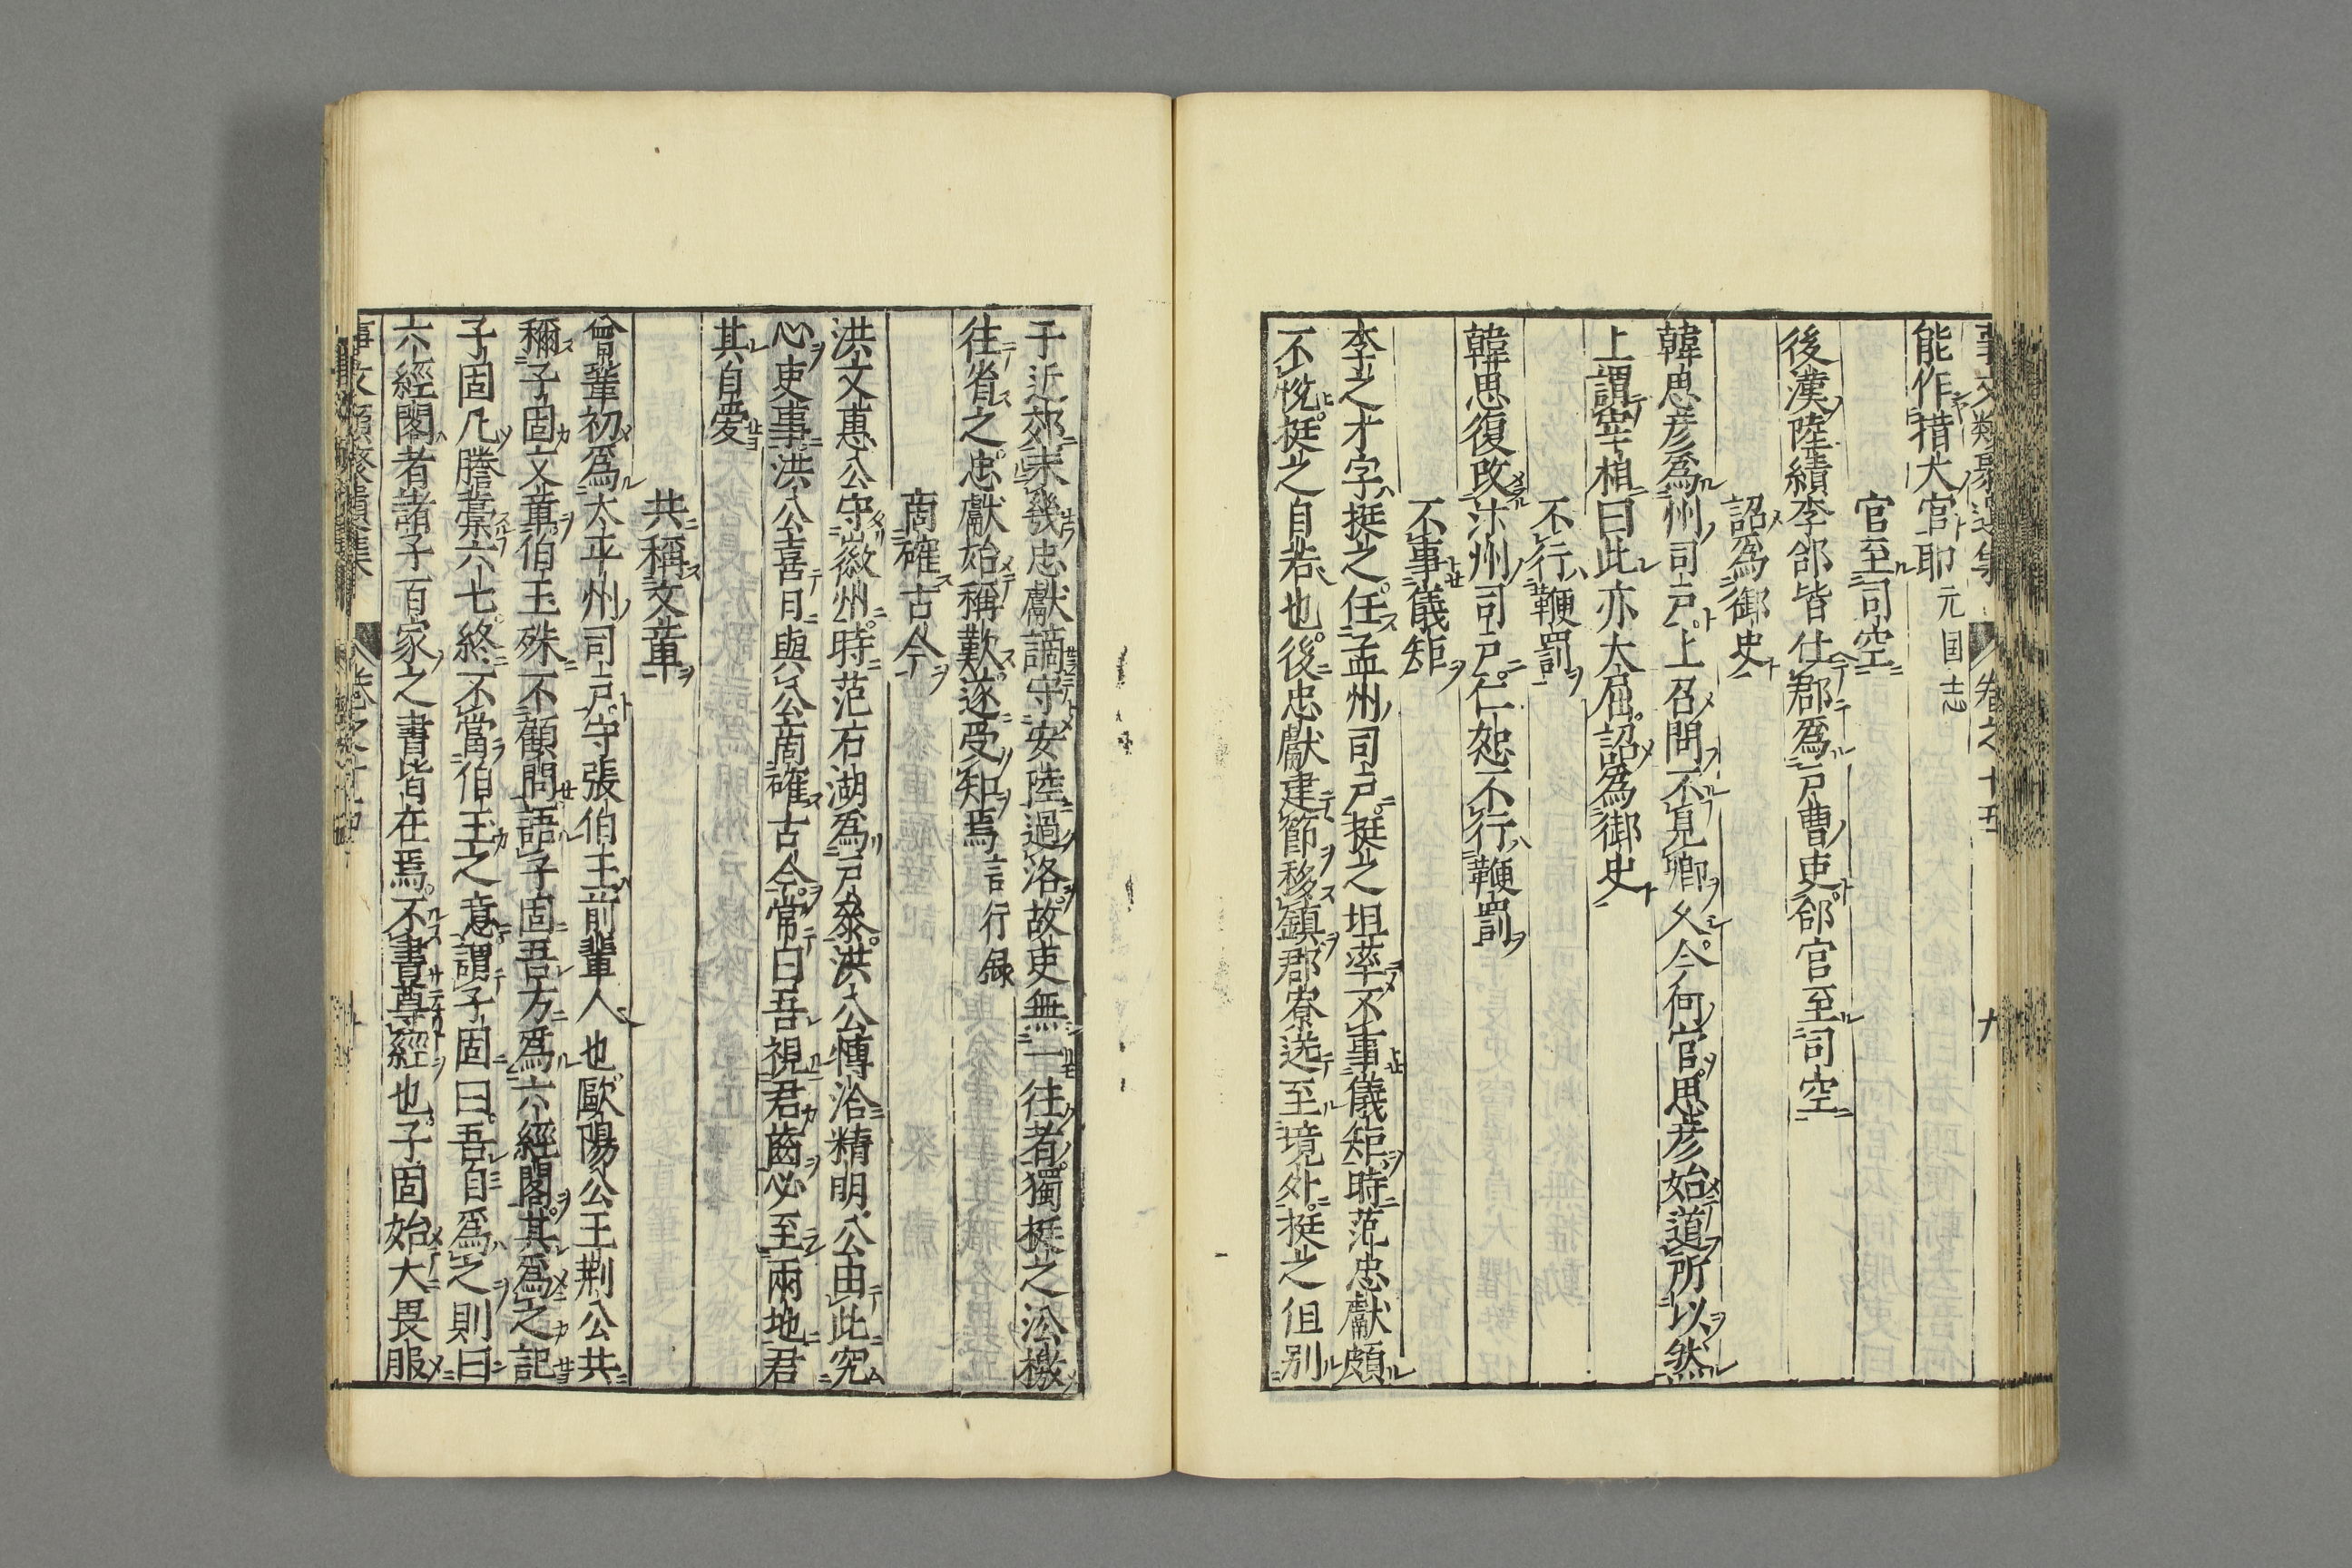 能作措大官耶元国志
官至司空
後漢陸績李郃皆仕郡為戸曹吏郃官至司空
詔為御史
韓思彦為州司戸上召問不見卿久今何官思彦始道所以然
上謂宰相曰此亦大屈詔為御史
不行鞭罰
韓思復改汴州司戸仁恕不行鞭罰
不事儀矩
李之才字挺之任孟州司戸挺之坦率不事儀矩時范忠獻頗
不悅挺之自若也後忠獻建節移鎮郡寮送至境外挺之但别
于近郊未幾忠獻謫守安陸過洛故吏無一往者獨挺之沿檄
往省之忠獻始稱歎遂受知焉言行録
商確古今
洪文惠公守徽州時范石湖為戸叅洪公慱洽精明公由此究
心吏事洪公喜日與公商確古今常曰吾視君齒必至兩地君
其自愛
共稱文章
曾鞏初為太平州司戸守張伯玉前輩人也歐陽公王荆公共
稱子固文章伯玉殊不顧問語子固吾方為六經閣其為之記
子固凡謄藁六七終不當伯玉之意謂子固曰吾自為之則曰
六經閣者諸子百家之書皆在焉不書尊經也子固始大畏服